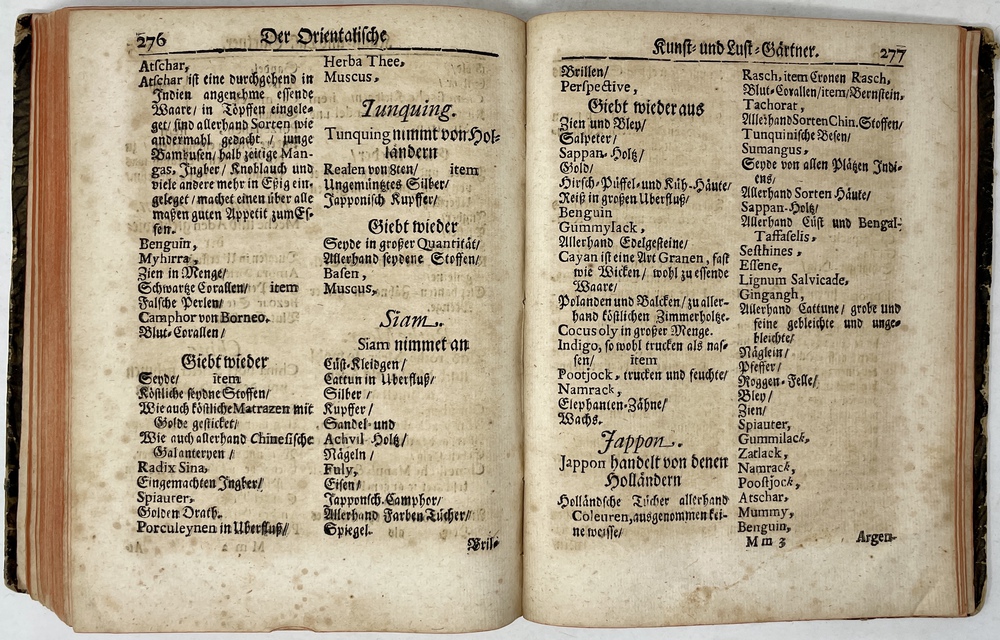 276
Der Orientalische
Atschar,
Atschar ist eine durchgehend in
Indien angenehme essende
Waare/ in Töpffen eingele-
get/ sind allerhand Sorten wie
andermahl gedacht / junge
Bambusen/ halb zeitige Man-
gas, Ingber/ Knoblauch und
viele andere mehr in Eßig ein-
geleget/ machet einen über alle
maßen guten Appetit zum Es-
sen.
Benguin,
Myhirra,
Zien in Menge/
Schwartze Corallen/ item
Falsche Perlen/
Camphor von Borneo,
Blut-Corallen/
Giebt wieder
Seyde/ item
Köstliche seydne Stoffen/
Wie auch köstliche Matrazen mit
Golde gesticket/
Wie auch allerhand Chinesische
Galanteryen /
Radix Sina,
Eingemachten Ingber/
Spiaurer,
Golden Drath.
Porculeynen in Uberfluß/
Herba Thee,
Muscus,
Tunquing.
Tunquing nimmt von Hol-
ländern
Realen von 8ten/ item
Ungemüntzes Silber/
Japponisch Kupffer/
Giebt wieder
Seyde in großer Quantität/
Allerhand seydene Stoffen/
Basen,
Muscus,
Siam.
Siam nimmet an
Cüst-Kleidgen/
Cattun in Uberfluß/
Silber /
Kupffer /
Sandel- und
Achvil-Holtz/
Nägeln /
Fuly,
Eisen/
Japponsch. Camphor/
Allerhand Farben Tücher/
Spiegel.
Bril-
Kunst- und Lust-Gärtner.
277
Brillen/
Perspective,
Giebt wieder aus
Zien und Bley/
Salpeter/
Sappan-Holtz/
Gold/
Hirsch-Püffel- und Küh-Häute/
Reiß in großen Uberfluß/
Benguin
Gummylack,
Allerhand Edelgesteine/
Cayan ist eine Art Granen, fast
wie Wicken/ wohl zu essende
Waare/
Polanden und Balcken/ zu aller-
hand köstlichen Zimmerholtze.
Cocus oly in großer Menge.
Indigo, so wohl trucken als nas-
sen/ item
Pootjock, trucken und feuchte/
Namrack,
Elephanten-Zähne/
Wachs.
Jappon.
Jappon handelt von denen
Holländern
Holländsche Tücher allerhand
Coleuren, ausgenommen kei-
ne weisse/
Rasch, item Cronen Rasch,
Blut-Corallen/ item/ Bernstein,
Tachorat,
Allerhand Sorten Chin. Stoffen/
Tunquinische Besen/
Sumangus,
Seyde von allen Plätzen Indi-
ens/
Allerhand Sorten Häute/
Sappan-Holtz/
Allerhand Cüst und Bengal-
Taffaselis,
Sesthines,
Essene,
Lignum Salvicade,
Gingangh,
Allerhand Cattune/ grobe und
feine gebleichte und unge-
bleichte/
Näglein/
Pfeffer/
Roggen-Felle/
Bley/
Zien/
Spiauter,
Gummilack,
Zatlack,
Namrack,
Poostjock,
Atschar,
Mummy,
Benguin,
M m 3
Argen-